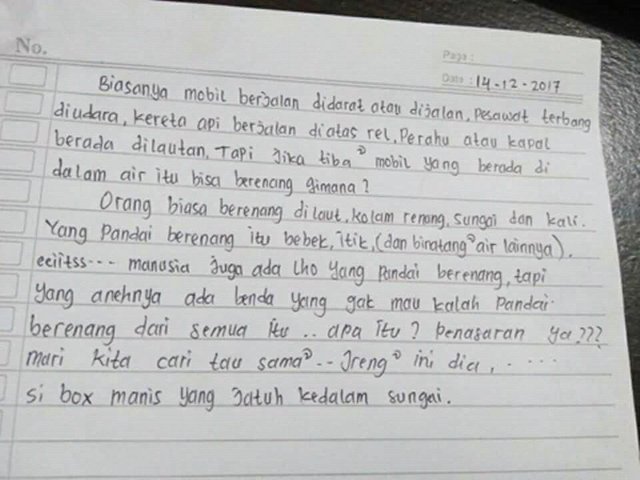 No.
Page :
Date : 14-12-2017
Biasanya mobil berjalan didarat atau dijalan, pesawat terbang
diudara, kereta api berjalan diatas rel, Perahu atau kapal
berada dilautan, Tapi jika tiba² mobil yang berada di
dalam air itu bisa berenang gimana?
Orang biasa berenang di laut, kolam renang, sungai dan kali.
Yang Pandai berenang itu bebek, itik, (dan binatang² air lainnya).
eeiitss--- manusia Juga ada lho Yang Pandai berenang, tapi
Yang anehnya ada benda Yang gak mau kalah Pandai
berenang dari semua itu .. apa itu? Penasaran Ya???
mari kita cari tau sama² .. Jreng² ini dia, . ....
si box manis Yang Jatuh kedalam sungai.